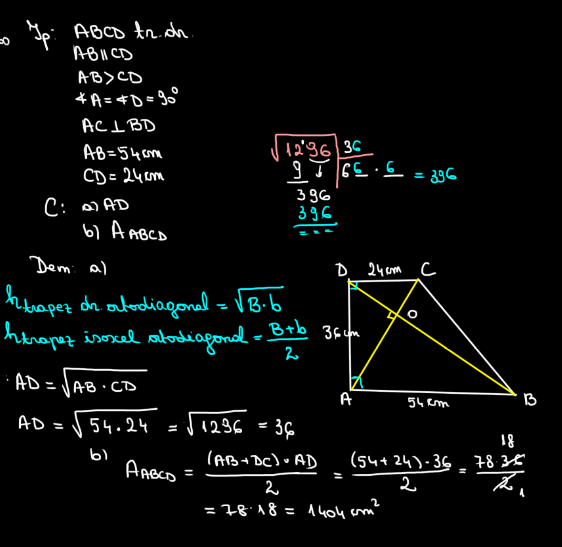 Ip: ABCD tr. dr.
AB∥CD
AB>CD
∢A=∢D=90°
AC⊥BD
AB=54cm
CD=24cm
C: a) AD
b) A ABCD
√1296 | 36
9 ↓ 66 · 6 = 396
396
396
===
Dem: a)
h trapez dr. ortodiagonal = √B·b
h trapez isoscel ortodiagonal = B+b / 2
AD = √AB·CD
AD = √54·24 = √1296 = 36
b) A ABCD = (AB+DC)·AD / 2 = (54+24)·36 / 2 = 78·36 / 2 18 1
= 78·18 = 1404 cm²
D 24cm C
O
36cm
A 54cm B